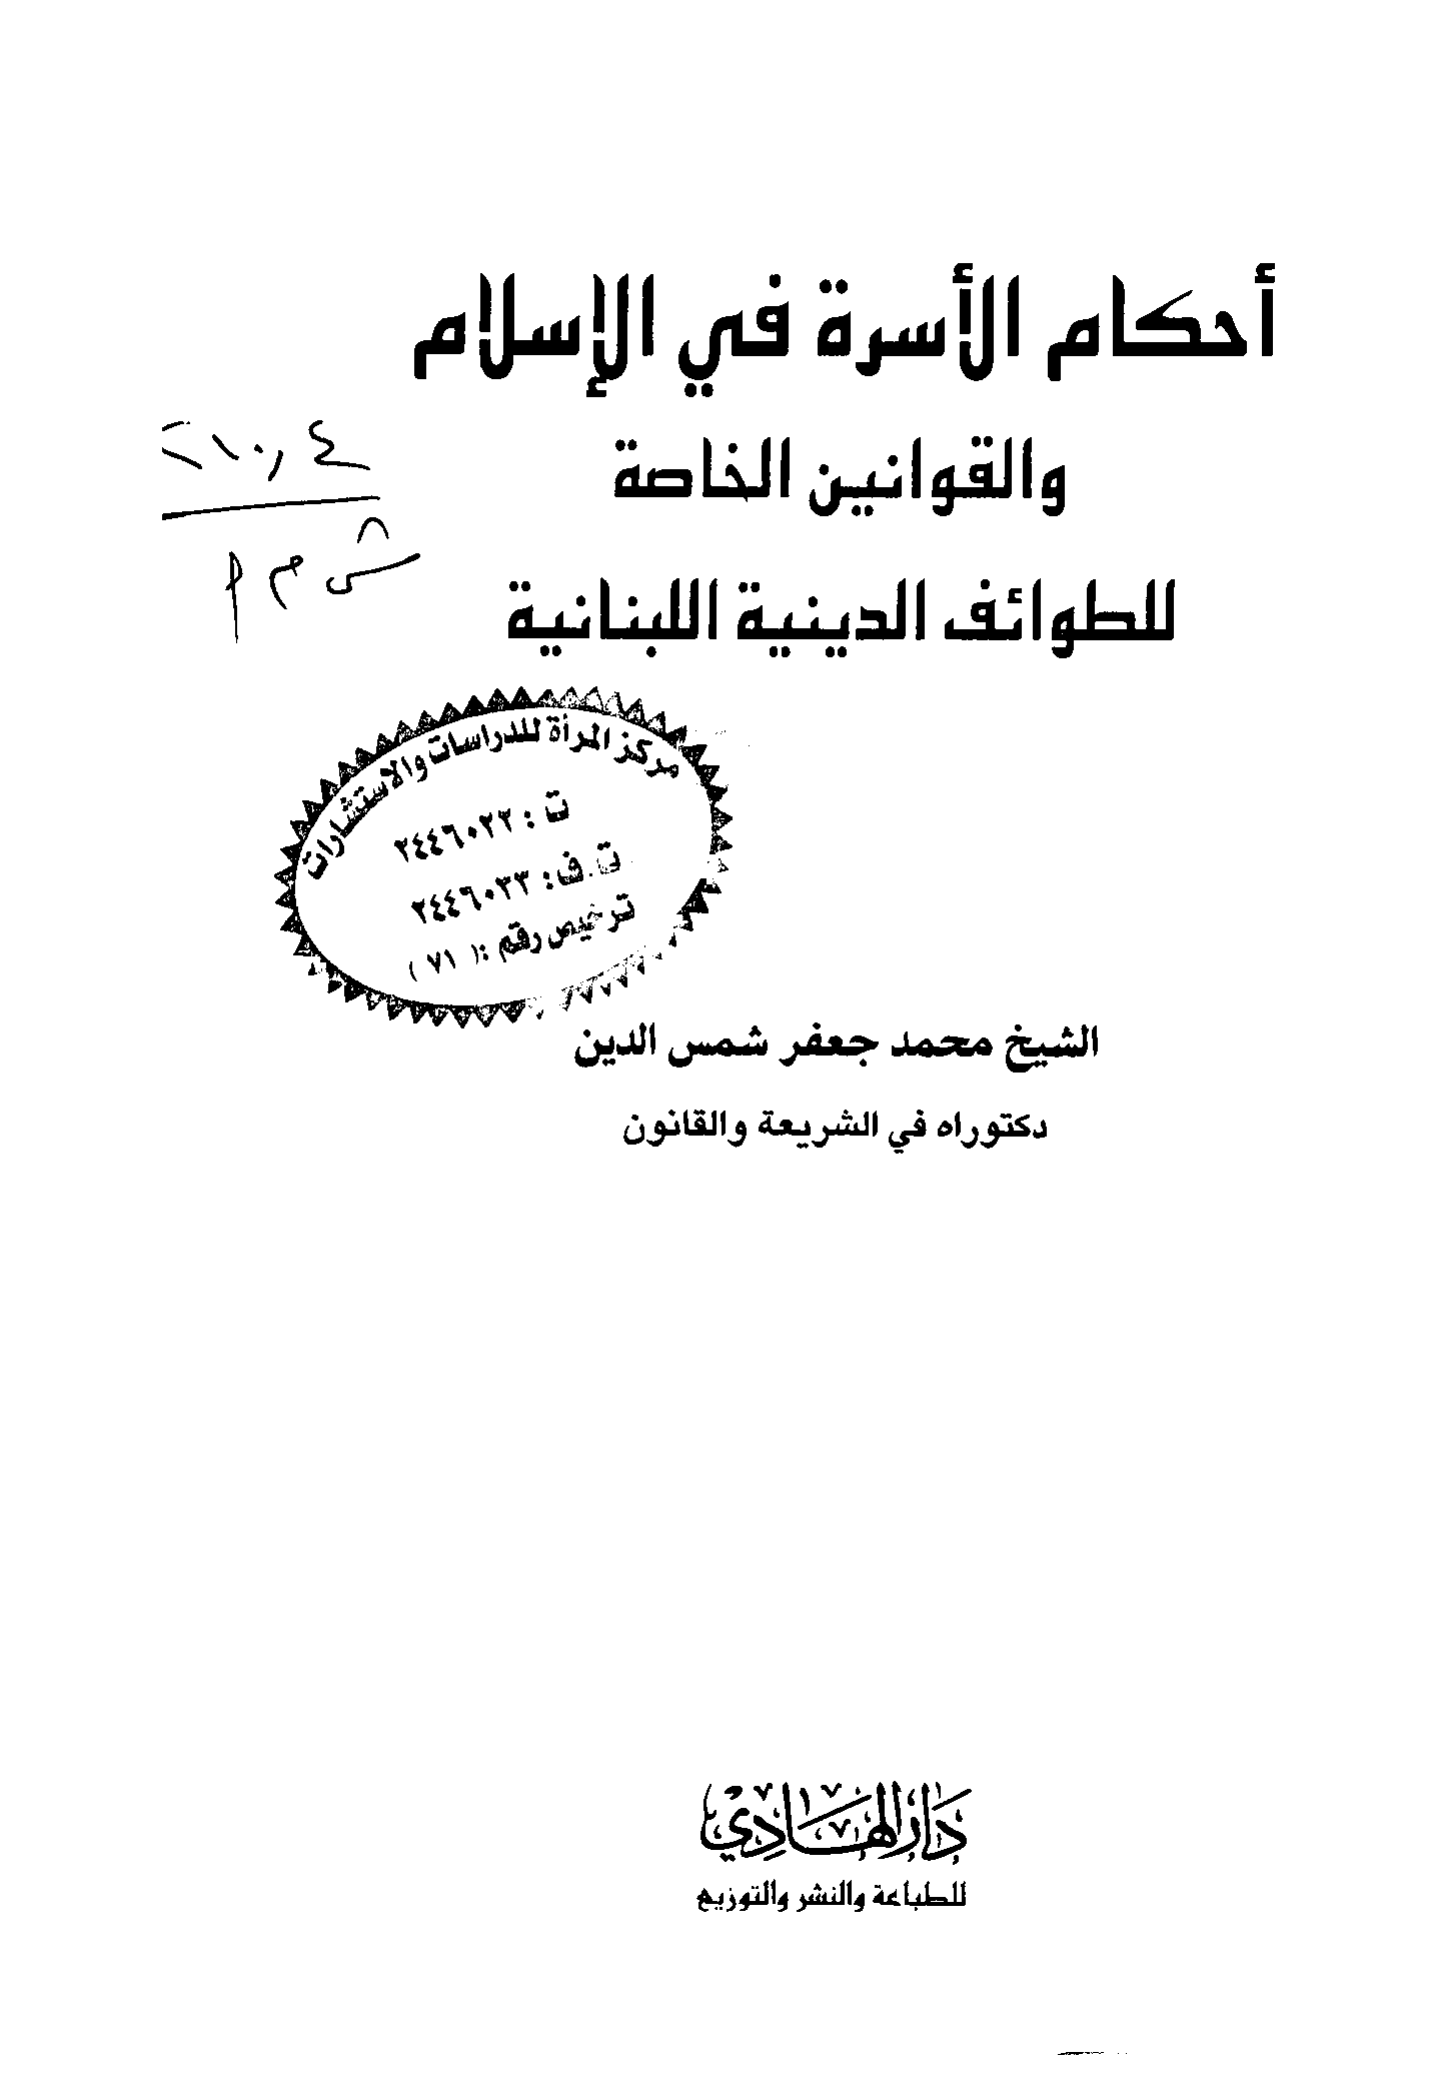 أحكام الأسرة في الإسلام
والقوانين الخاصة
للطوائف الدينية اللبنانية
٢١٠,٤
ش م أ
مركز المرأة للدراسات والاستشارات
ت : ٢٤٤٦٠٢٢
ت.ف: ٢٤٤٦٠٣٣
ترخيص رقم :( ٧١ )
الشيخ محمد جعفر شمس الدين
دكتوراه في الشريعة والقانون
دَارُ الهَادِي
للطباعة والنشر والتوزيع